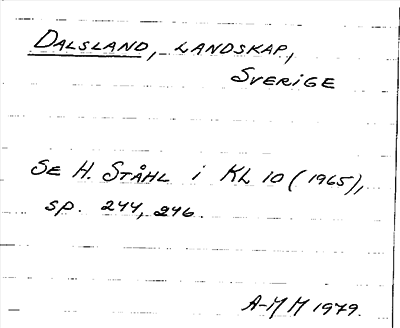 DALSLAND, LANDSKAP,
SVERIGE
SE H. STÅHL i KL 10 (1965),
sp. 244, 246.
A-M M 1979.